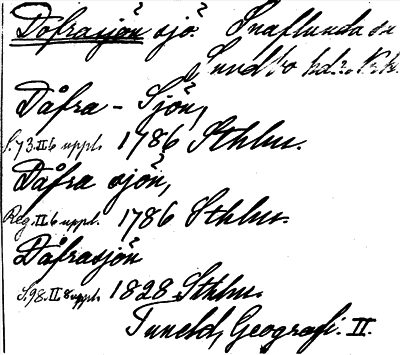 Dofrasjön sjö. Snaflunda sn
Sundbo hd. Ner.
Dåfra - Sjön,
S. 73. II. 6 uppl. 1786 Sthlm.
Dåfra sjön,
Reg. II. 6 uppl. 1786 Sthlm.
Dåfrasjön
S. 98. II. 8 uppl. 1828 Sthlm.
Tuneld, Geografi. II.